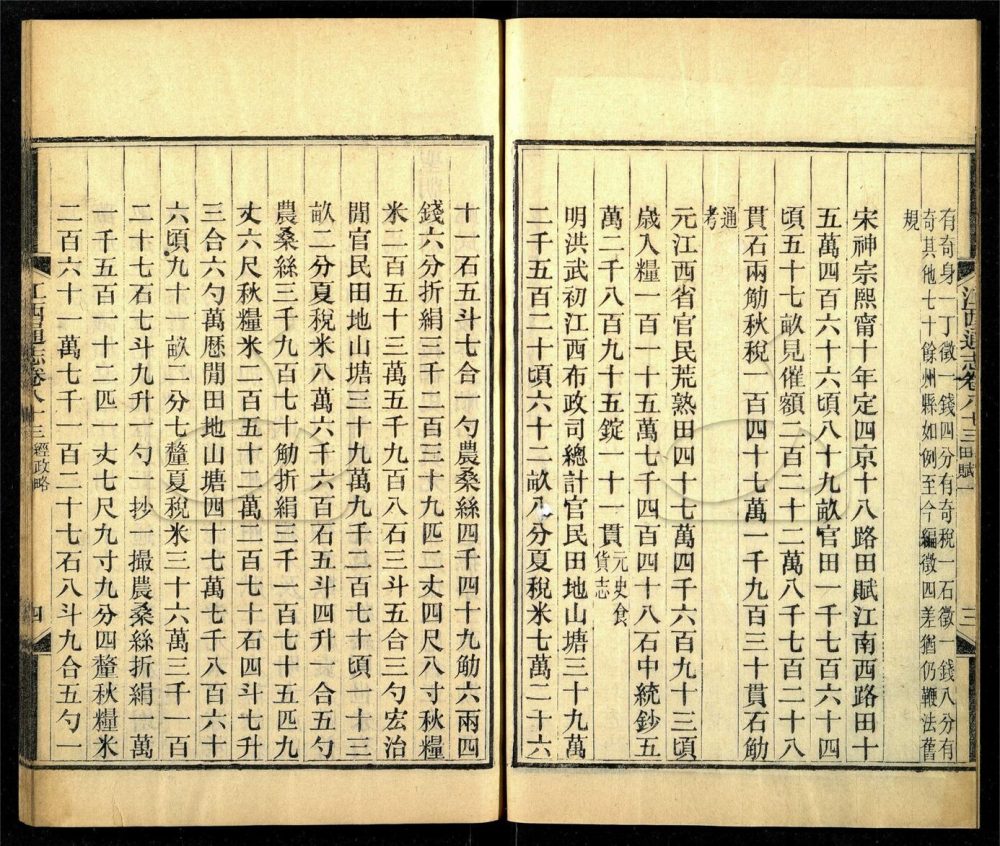 有奇身一丁徵一錢四分有奇稅一石徵一錢八分有
奇其他七十餘州縣如例至今編徵四差猶仍鞭法舊
規
宋神宗熙甯十年定四京十八路田賦江南西路田十
五萬四百六十六頃八十九畝官田一千七百六十四
頃五十七畝見催額二百二十二萬八千七百二十八
貫石兩觔秋稅一百四十七萬一千九百三十貫石觔
通
考
元江西省官民荒熟田四十七萬四千六百九十三頃
歲入糧一百一十五萬七千四百四十八石中統鈔五
萬二千八百九十五錠一十一貫元史食
貨志
明洪武初江西布政司總計官民田地山塘三十九萬
二千五百二十頃六十二畝八分夏稅米七萬二十六
江西通志卷八十三田賦一
三
十一石五斗七合一勺農桑絲四千四十九觔六兩四
錢六分折絹三千二百三十九匹二丈四尺八寸秋糧
米二百五十三萬五千九百八石三斗五合三勺宏治
閒官民田地山塘三十九萬九千二百七十頃一十三
畝二分夏稅米八萬六千六百石五斗四升一合五勺
農桑絲三千九百七十觔折絹三千一百七十五匹九
丈六尺秋糧米二百五十二萬二百七十石四斗七升
三合六勺萬厯閒田地山塘四十七萬七千八百六十
六頃九十一畝二分七釐夏稅米三十六萬三千一百
二十七石七斗九升一勺一抄一撮農桑絲折絹一萬
一千五百一十二匹一丈七尺九寸九分四釐秋糧米
二百六十一萬七千一百二十七石八斗九合五勺一
江西通志卷八十三經政略
四